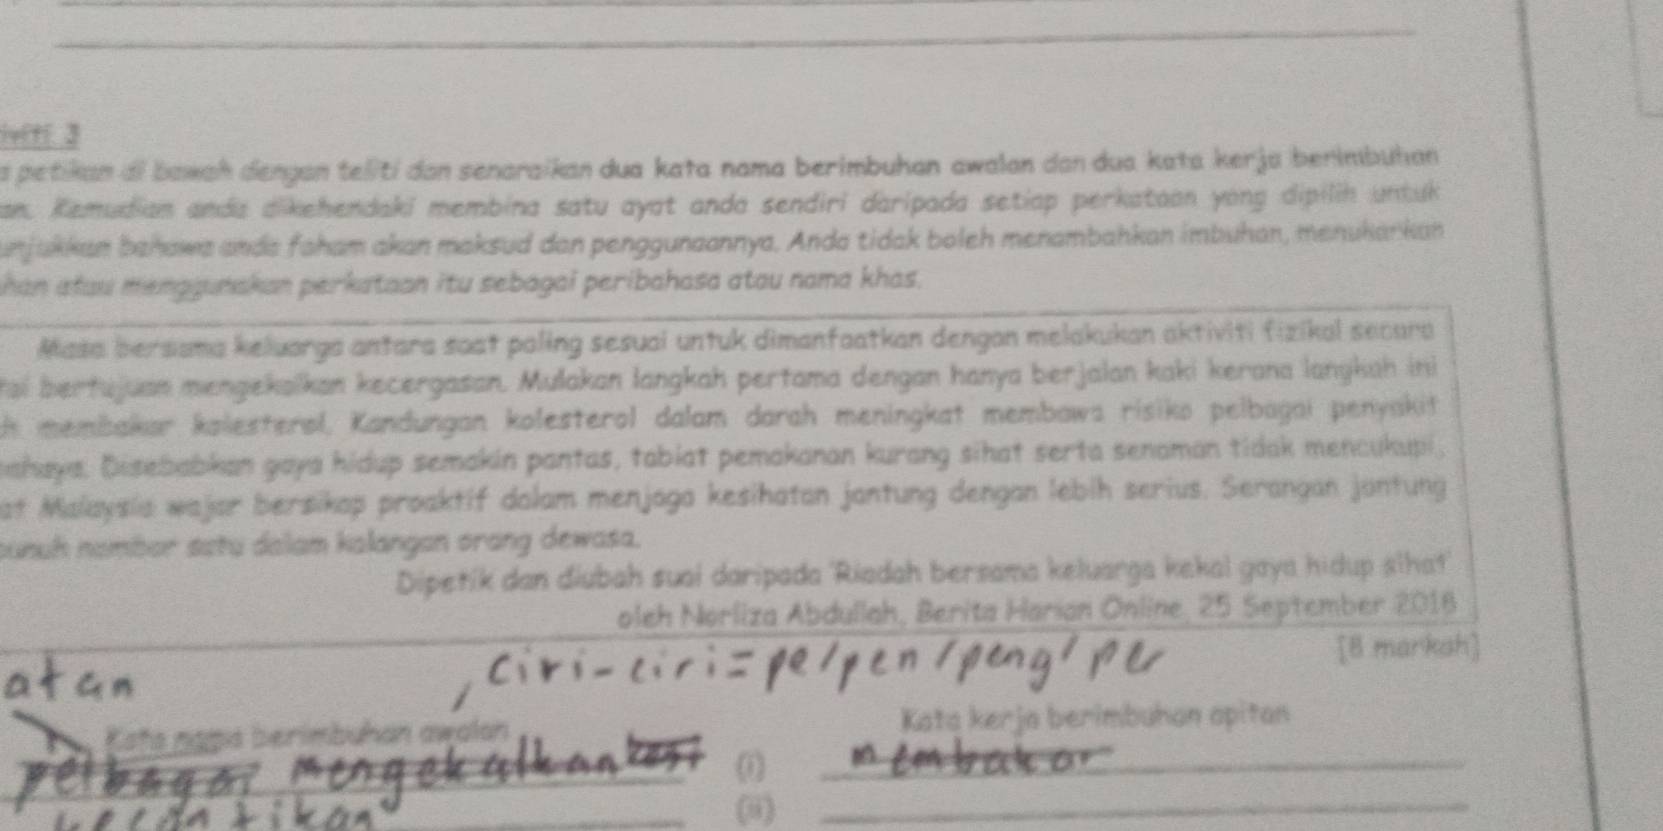 iviti 3
a petikan di bawah dengan teliti dan senaraikan dua kata nama berimbuhan awalan dan dua kata kerja berimbuhan
an. Kemudian anda dikehendaki membina satu ayat anda sendiri daripada setiap perkataan yang dipilih untuk
unjukkan bahawa anda faham akan maksud dan penggunaannya. Anda tidak boleh menambahkan imbuhan, menukarkan
uhan atau menggunakan perkataan itu sebagai peribahasa atau nama khas.
Masa bersama keluarga antara saat paling sesuai untuk dimanfaatkan dengan melakukan aktiviti fizikal secara
tai bertujuan mengekalkan kecergasan. Mulakan langkah pertama dengan hanya berjalan kaki kerana langkah ini
h membakar kolesterol. Kandungan kolesterol dalam darah meningkat membawa risiko pelbagai penyakit
bahaya. Disebabkan gaya hidup semakin pantas, tabiat pemakanan kurang sihat serta senaman tidak mencukupi,
at Malaysia wajar bersikap proaktif dalam menjaga kesihatan jantung dengan lebih serius. Serangan jantung
bunuh nombor satu dalam kalangan orang dewasa.
Dipetik dan diubah suai daripada 'Riadah bersama keluarga kekal gaya hidup sihat'
oleh Norliza Abdullah, Berita Harian Online, 25 September 2016
[8 markah]
atan , ciri-ciri = pe/pen/peng/per
Kata nama berimbuhan awalan Kata kerja berimbuhan apitan
pelbagai mengekalkan (i) membakar
kecantikan (ii)